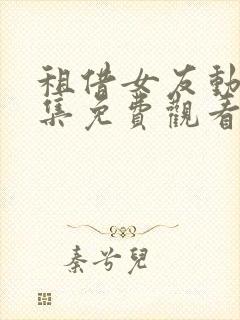 租借女友動
集免費觀看
秦兮兒